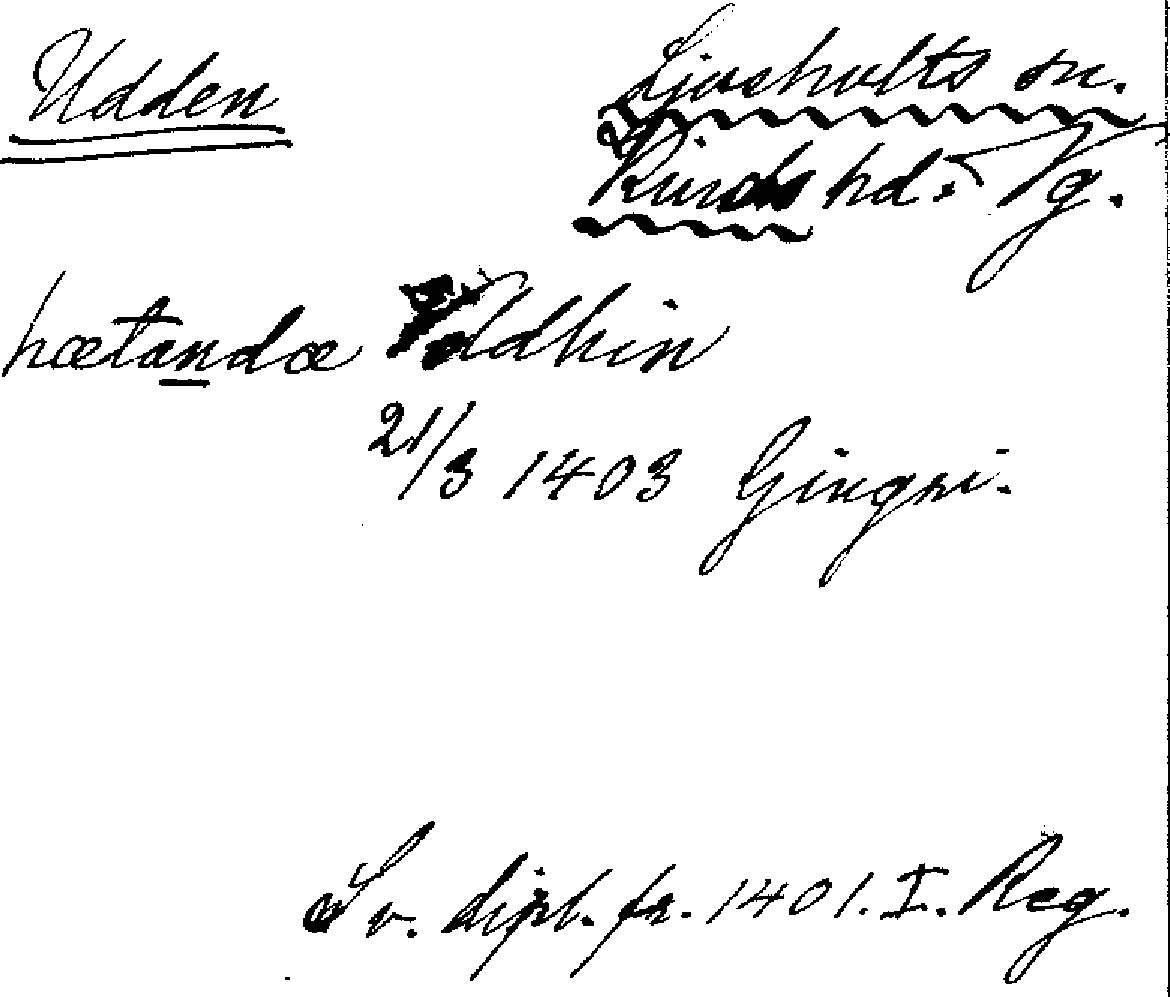 Udden
Ljushults sn.
Kinds hd. Vg.
hætandæ Uddhin
21/3 1403 Gingri.
Sv. dipl. fr. 1401. I. Reg.